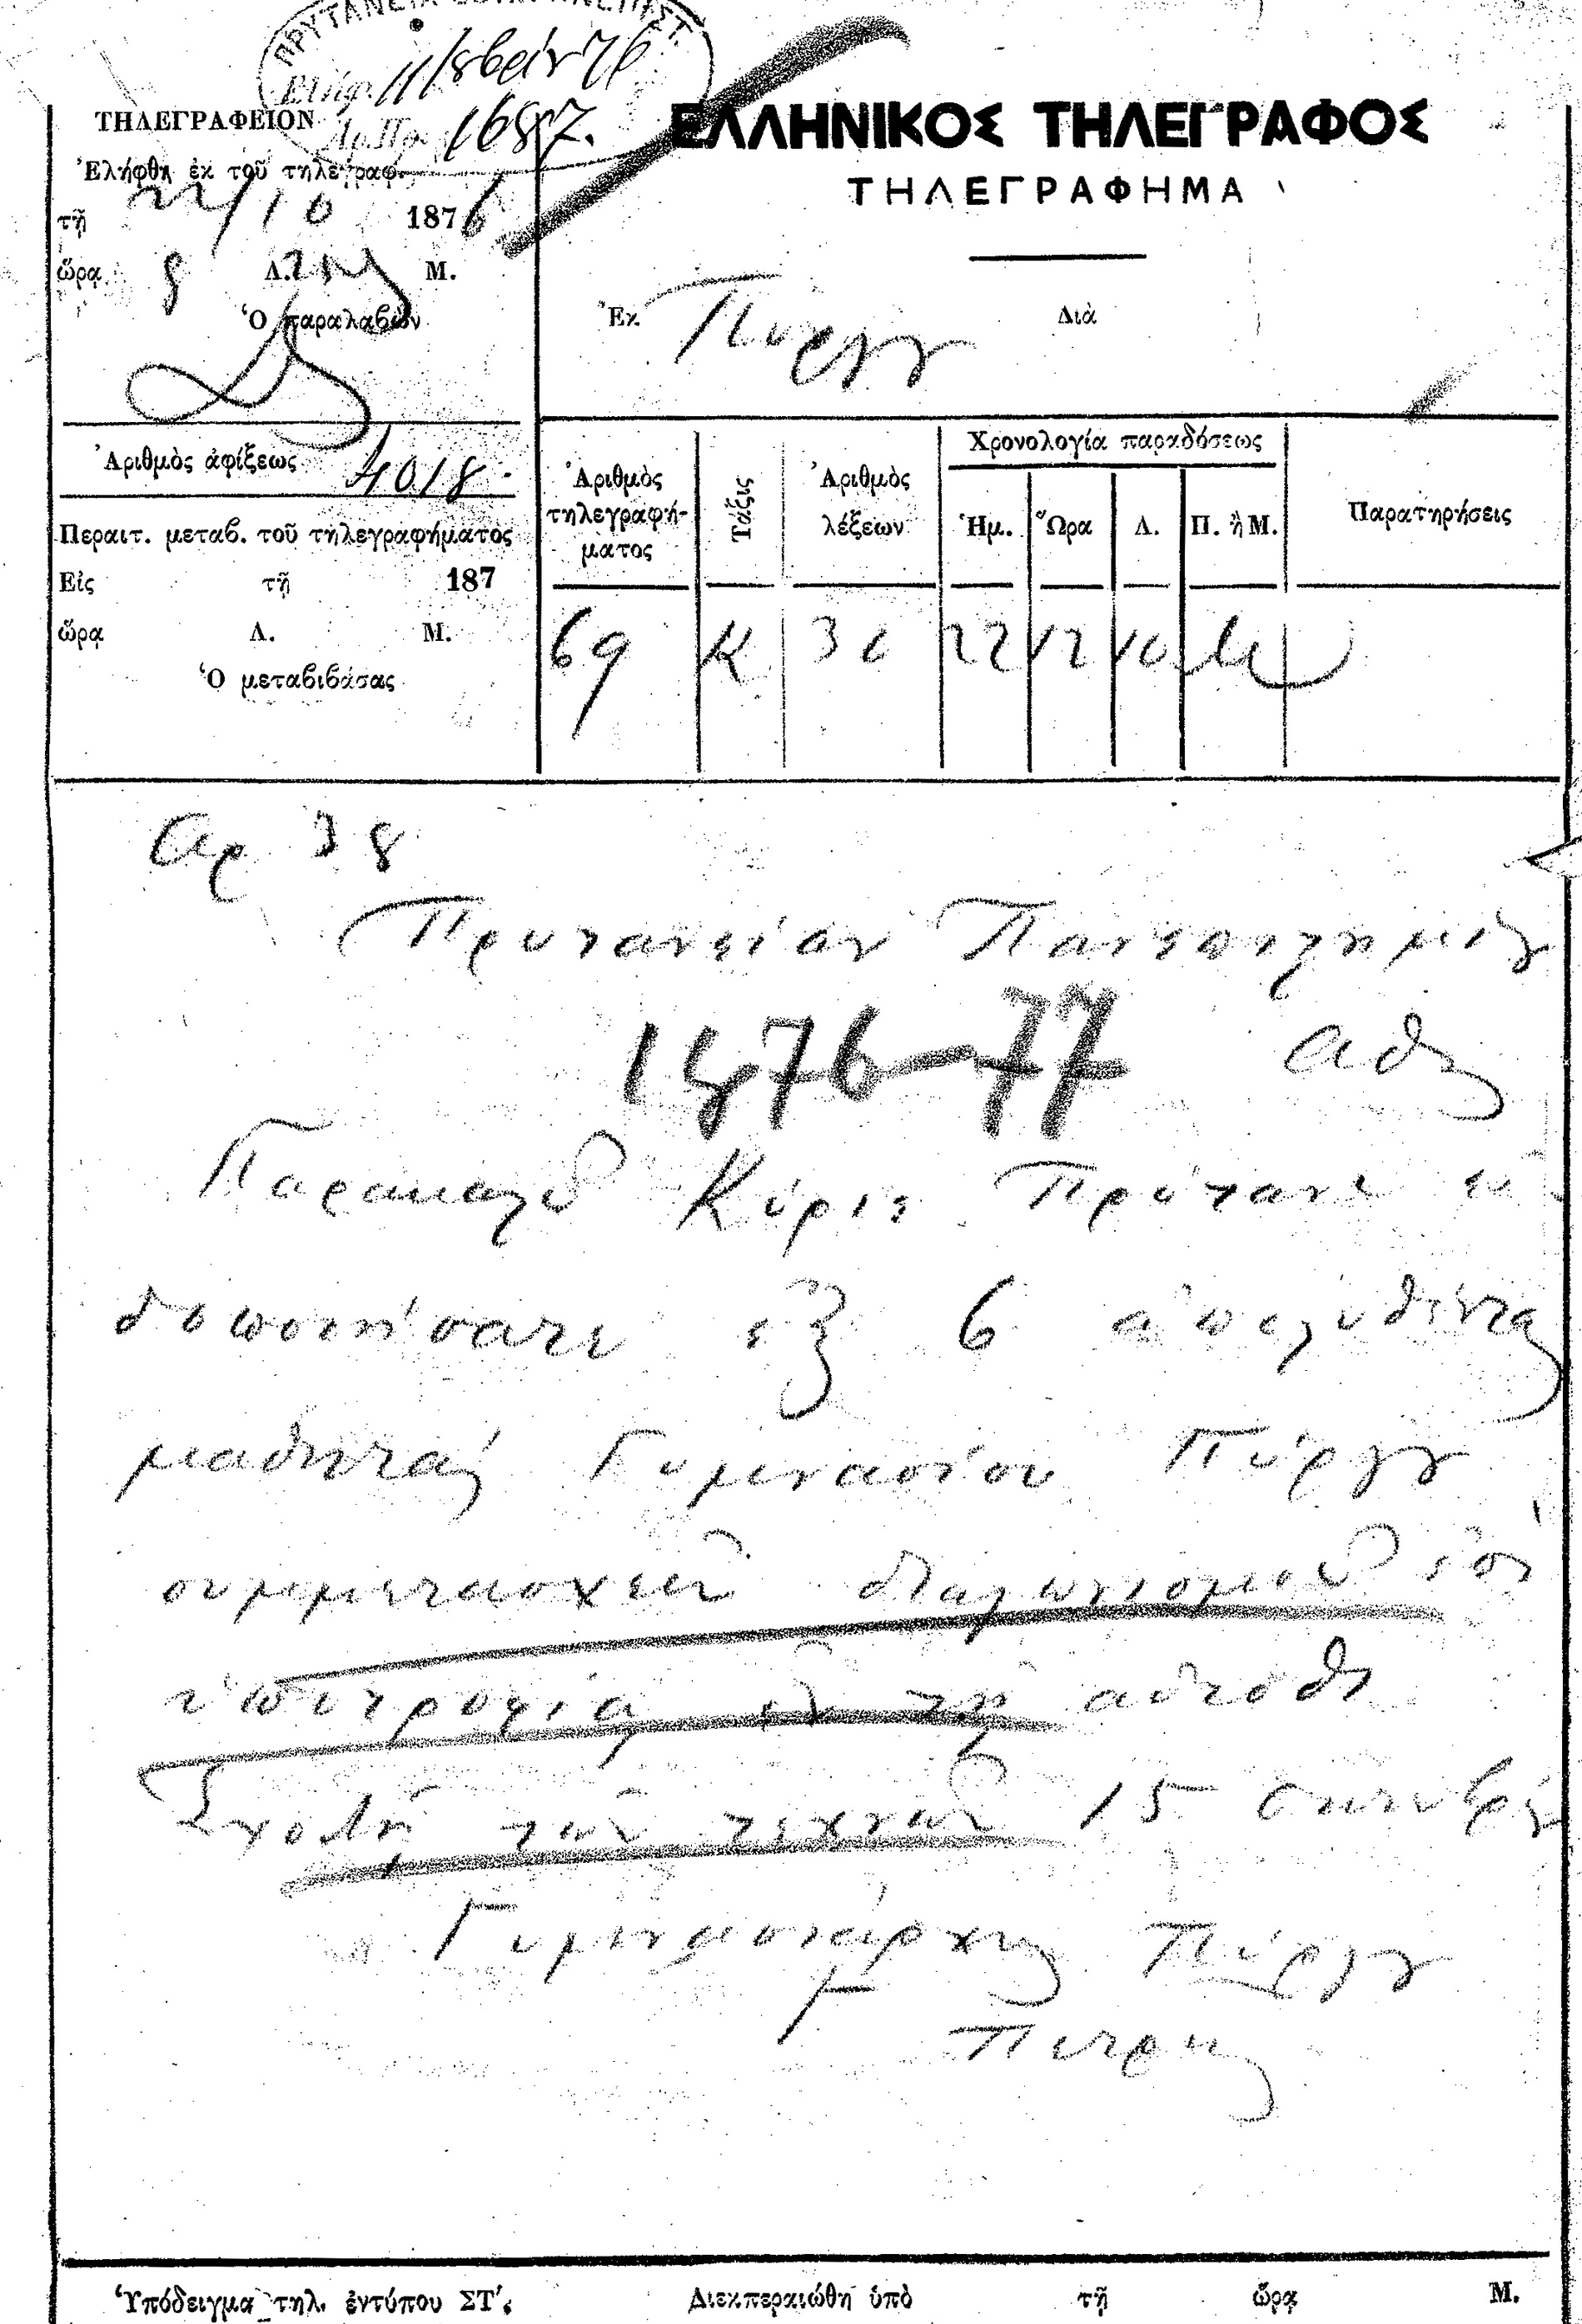 ΠΡΥΤΑΝΕΙΑ
Ἐλήφ. 11/8βρίου 76
Ἀρ. Πρ. 1687.
ΤΗΛΕΓΡΑΦΕΙΟΝ
Ἐλήφθη ἐκ τοῦ τηλεγραφ.
τῇ 22/10 1876
ὥρᾳ 8 Λ. Μ.
Ὁ παραλαβὼν
Ἀριθμὸς ἀφίξεως 4018.
Περαιτ. μεταβ. τοῦ τηλεγραφήματος
Εἰς τῇ 187
ὥρᾳ Λ. Μ.
Ὁ μεταβιβάσας
ΕΛΛΗΝΙΚΟΣ ΤΗΛΕΓΡΑΦΟΣ
ΤΗΛΕΓΡΑΦΗΜΑ
Ἐκ Πύργου Διὰ
Ἀριθμὸς τηλεγραφή-ματος Τάξις Ἀριθμὸς λέξεων Χρονολογία παραδόσεως Παρατηρήσεις
Ἡμ. Ὥρα Λ. Π. ἢ Μ.
69 Κ 36 22 12 10 Μ
Αρ 38
Πρυτανείαν Πανεπιστημίου
1876-77 Αθς
Παρακαλῶ Κύριε Πρύτανι εἰ
δοποιήσατε ἐξ 6 ἀπολυθέντας
μαθητάς Γυμνασίου Πύργου
συμμετασχεῖν διαγωνισμοῦ ἐπὶ
ὑποτροφίᾳ ἐν τῇ αὐτόθι
Σχολῇ τῶν τεχνῶν 15
Γυμνασιάρχης Πύργου
Πετρης
Ὑπόδειγμα τηλ. ἐντύπου ΣΤ΄. Διεκπεραιώθη ὑπὸ τῇ ὥρᾳ Μ.